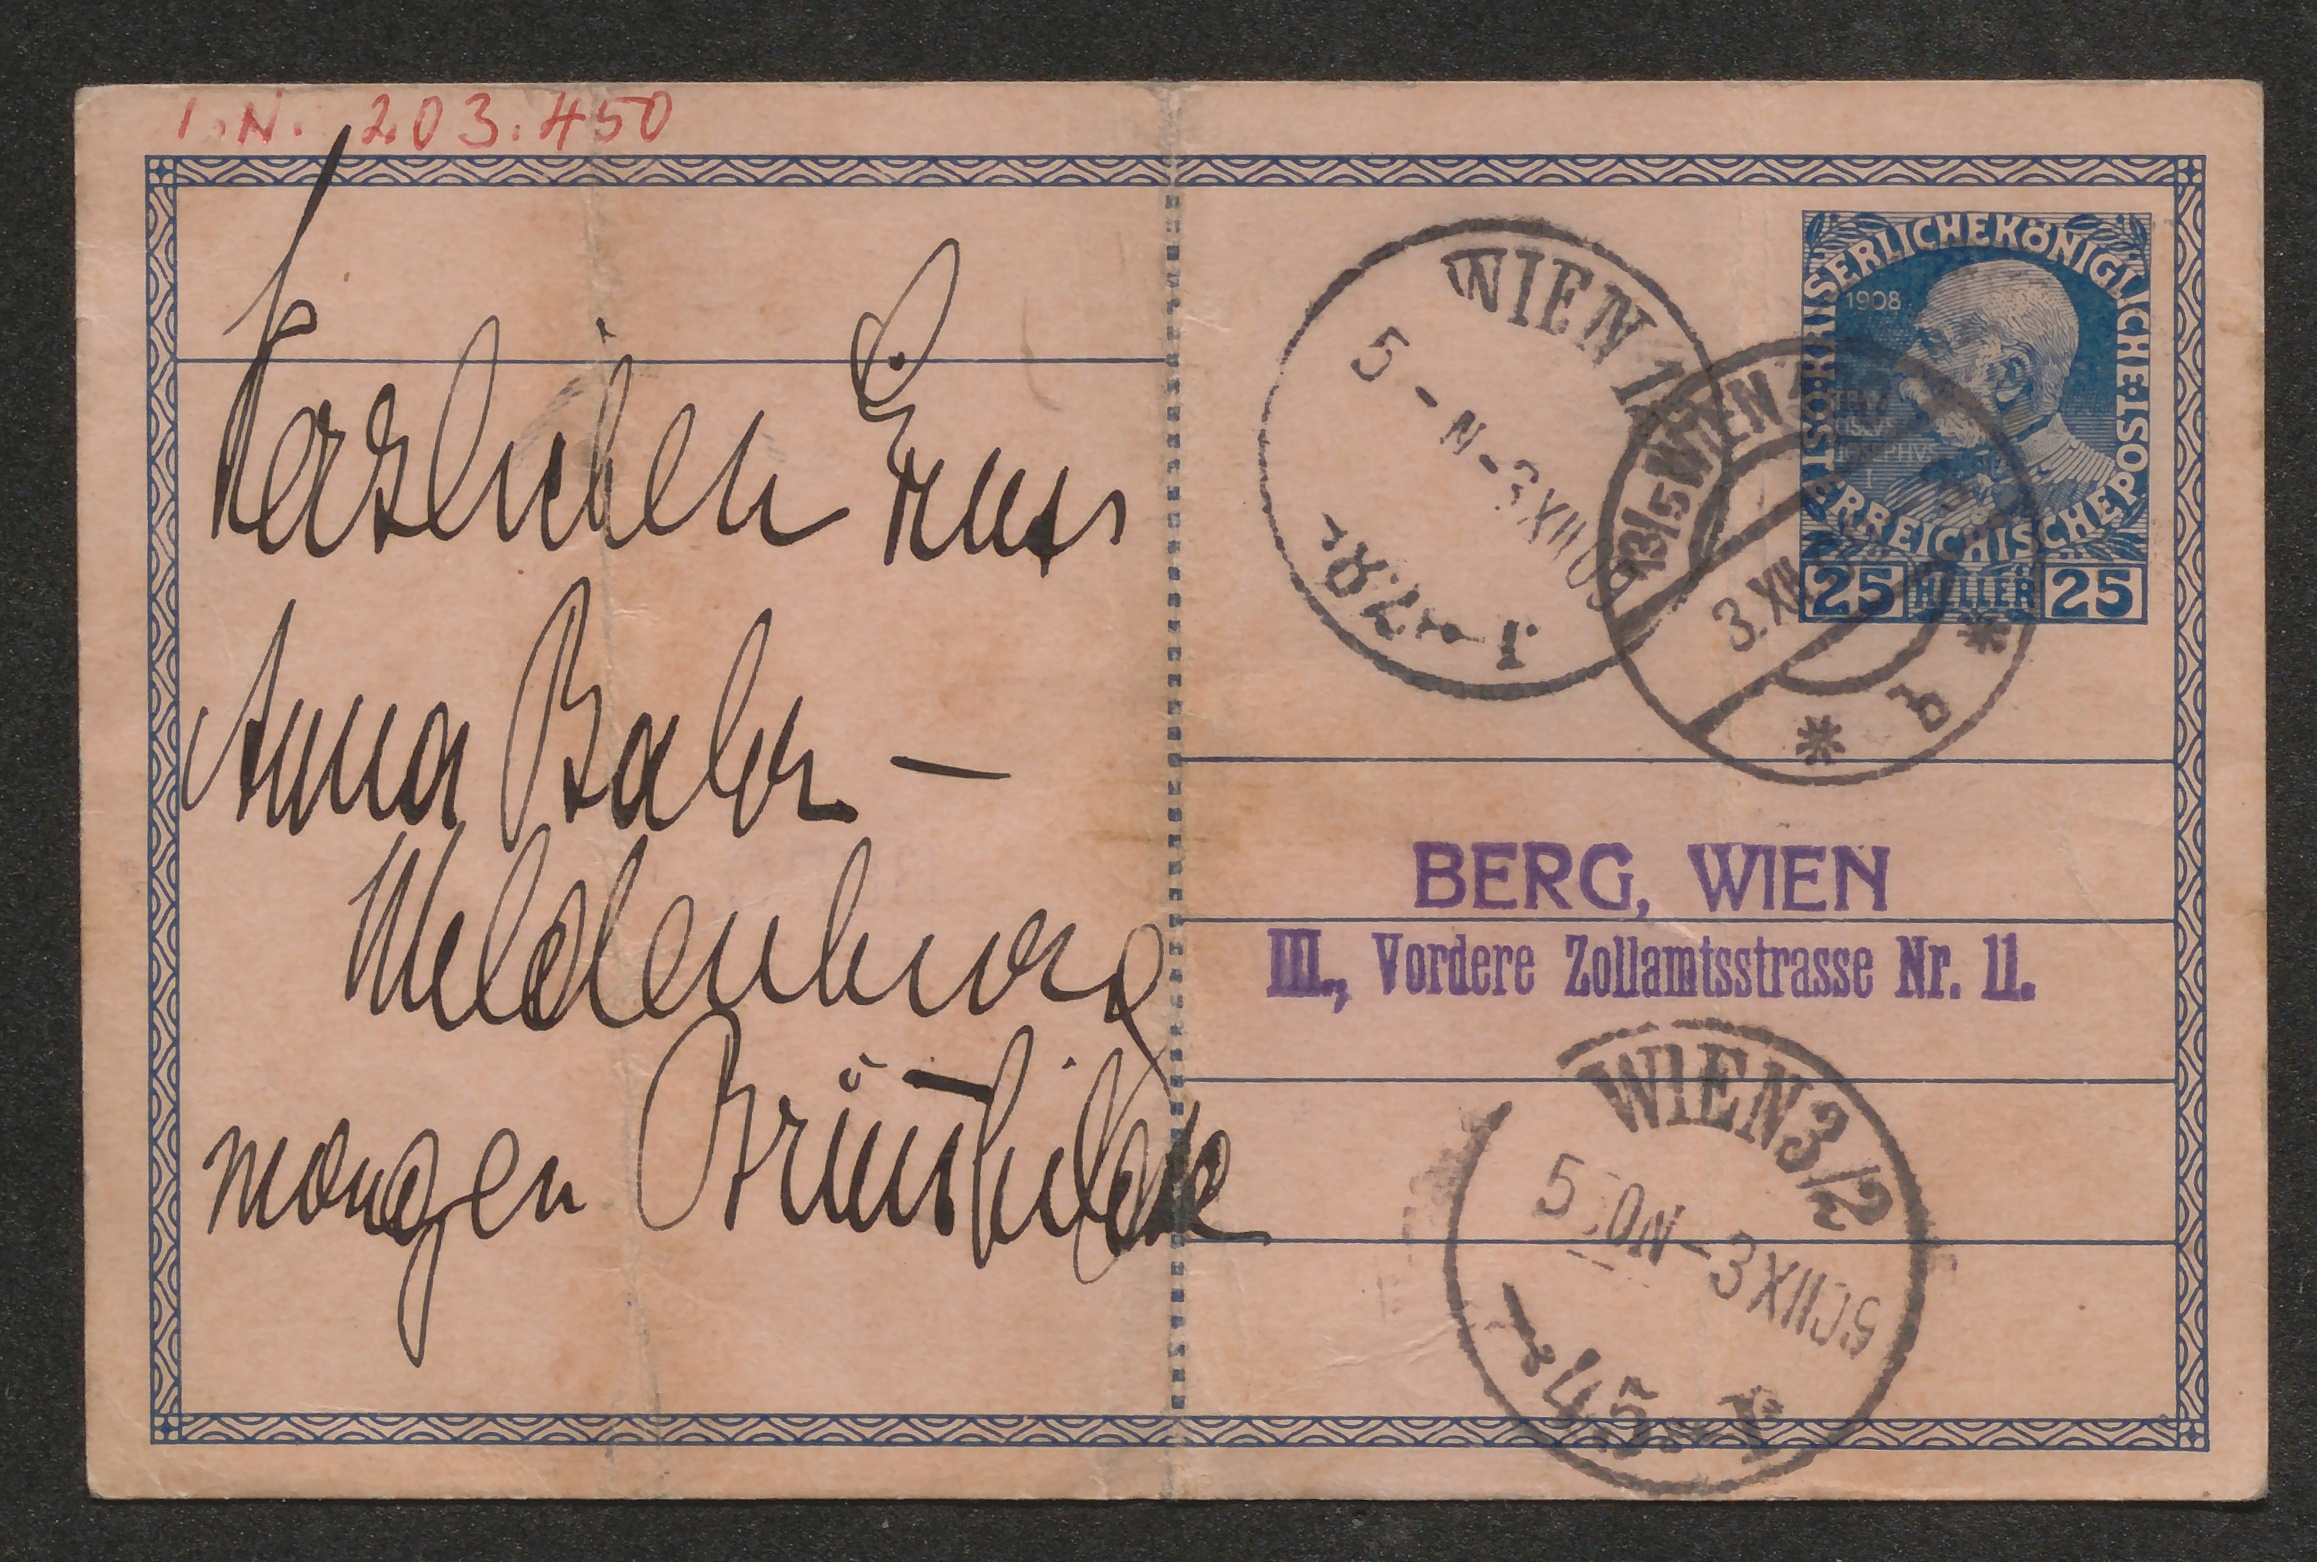 I.N. 203.450
Herzlichen Gruss
Anna Bahr-
Mildenburg
morgen Brünnhilde
WIEN 1
5 - N - 3 XII 09
WIEN
13/5
3. XII
b
KAISERLICHE KÖNIGLICHE
ÖSTERREICHISCHE POST
1908
FRANZ
ISCVS
IOSEPHVS
I
25 HELLER 25
BERG, WIEN
III., Vordere Zollamtsstrasse Nr. 11.
WIEN 3/2
5 50N - 3 XII 09
45